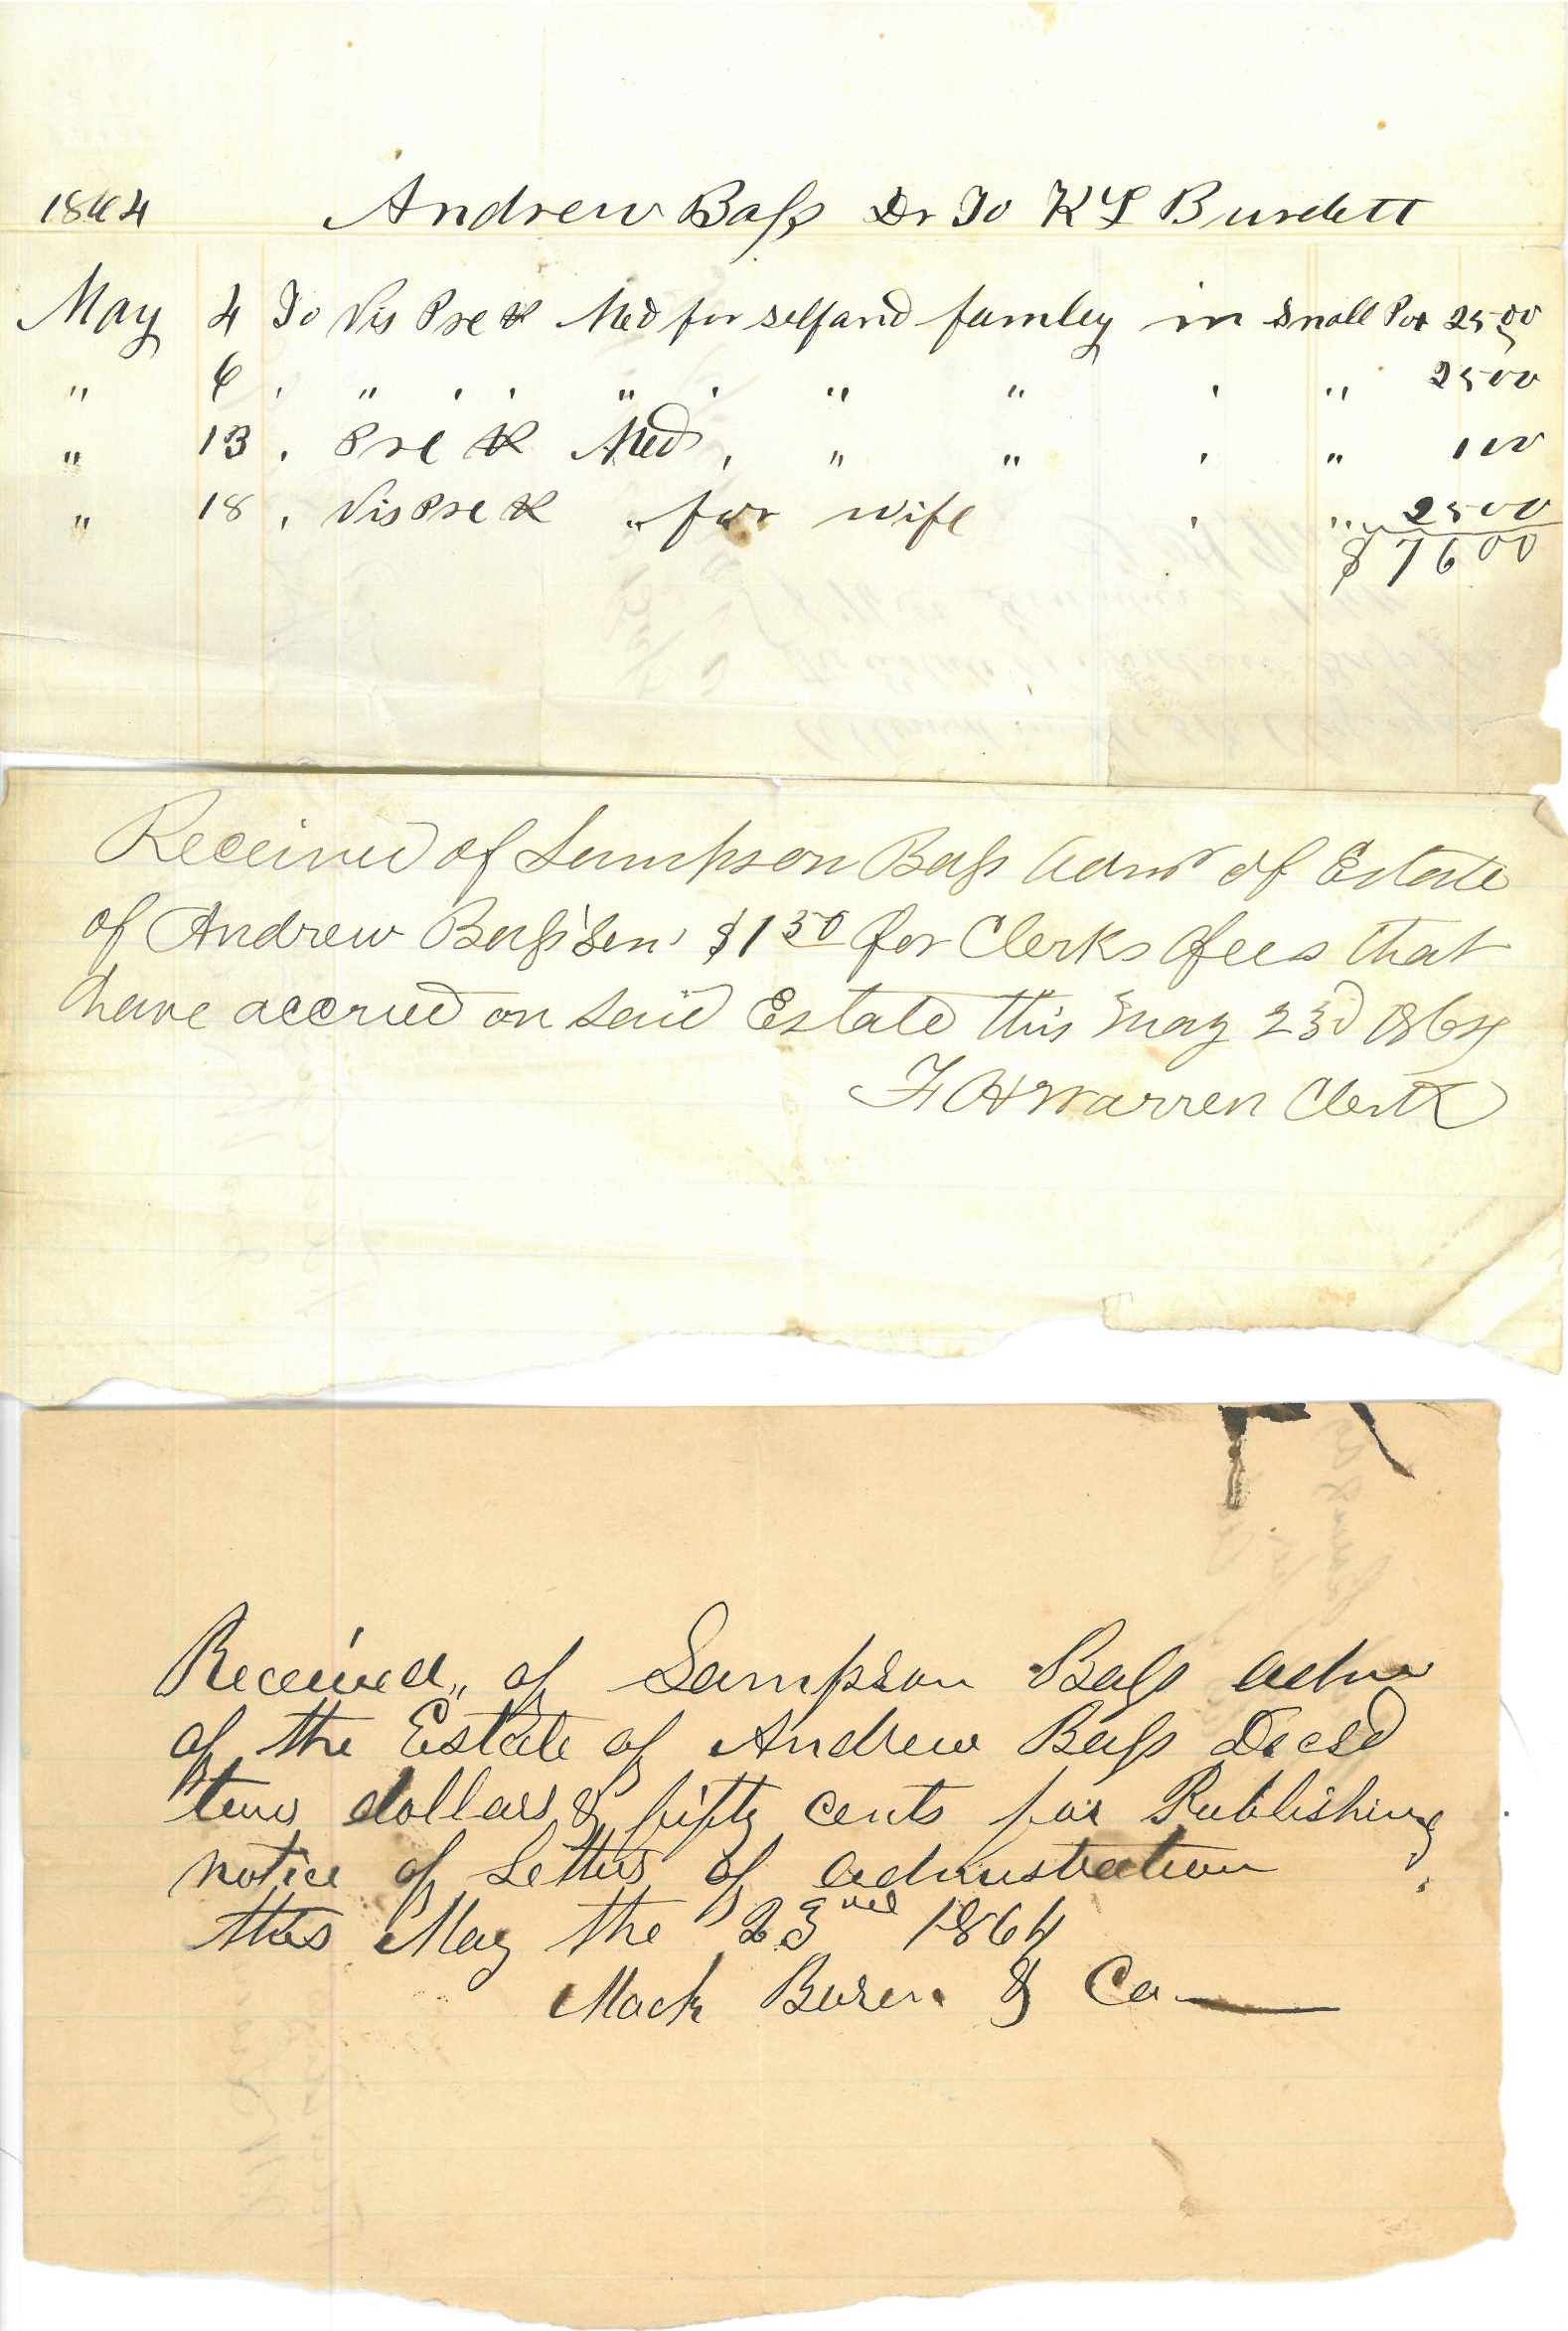 1864 Andrew Bass Dr To K L Burdett
May 4 To Vis Pre & Med for self and famley in Small Pox 25 00
" 6 , " , , " , " " , " 25 00
" 13 , Pre & Med , " " , " 1 00
" 18 , Vis Pre & " for wife , " 25 00
$ 76 00
Received of Sampson Bass Admr of Estate
of Andrew Bass Sen $1 50 for Clerks fees that
have accrued on said Estate this May 23d 1864
F H Warren Clerk
Received,, of Sampson Bass adm
of the Estate of Andrew Bass Decsd
two dollars & fifty cents for Publishing
notice of Letters of adminstration
this May the 23 1864
Mack & Co